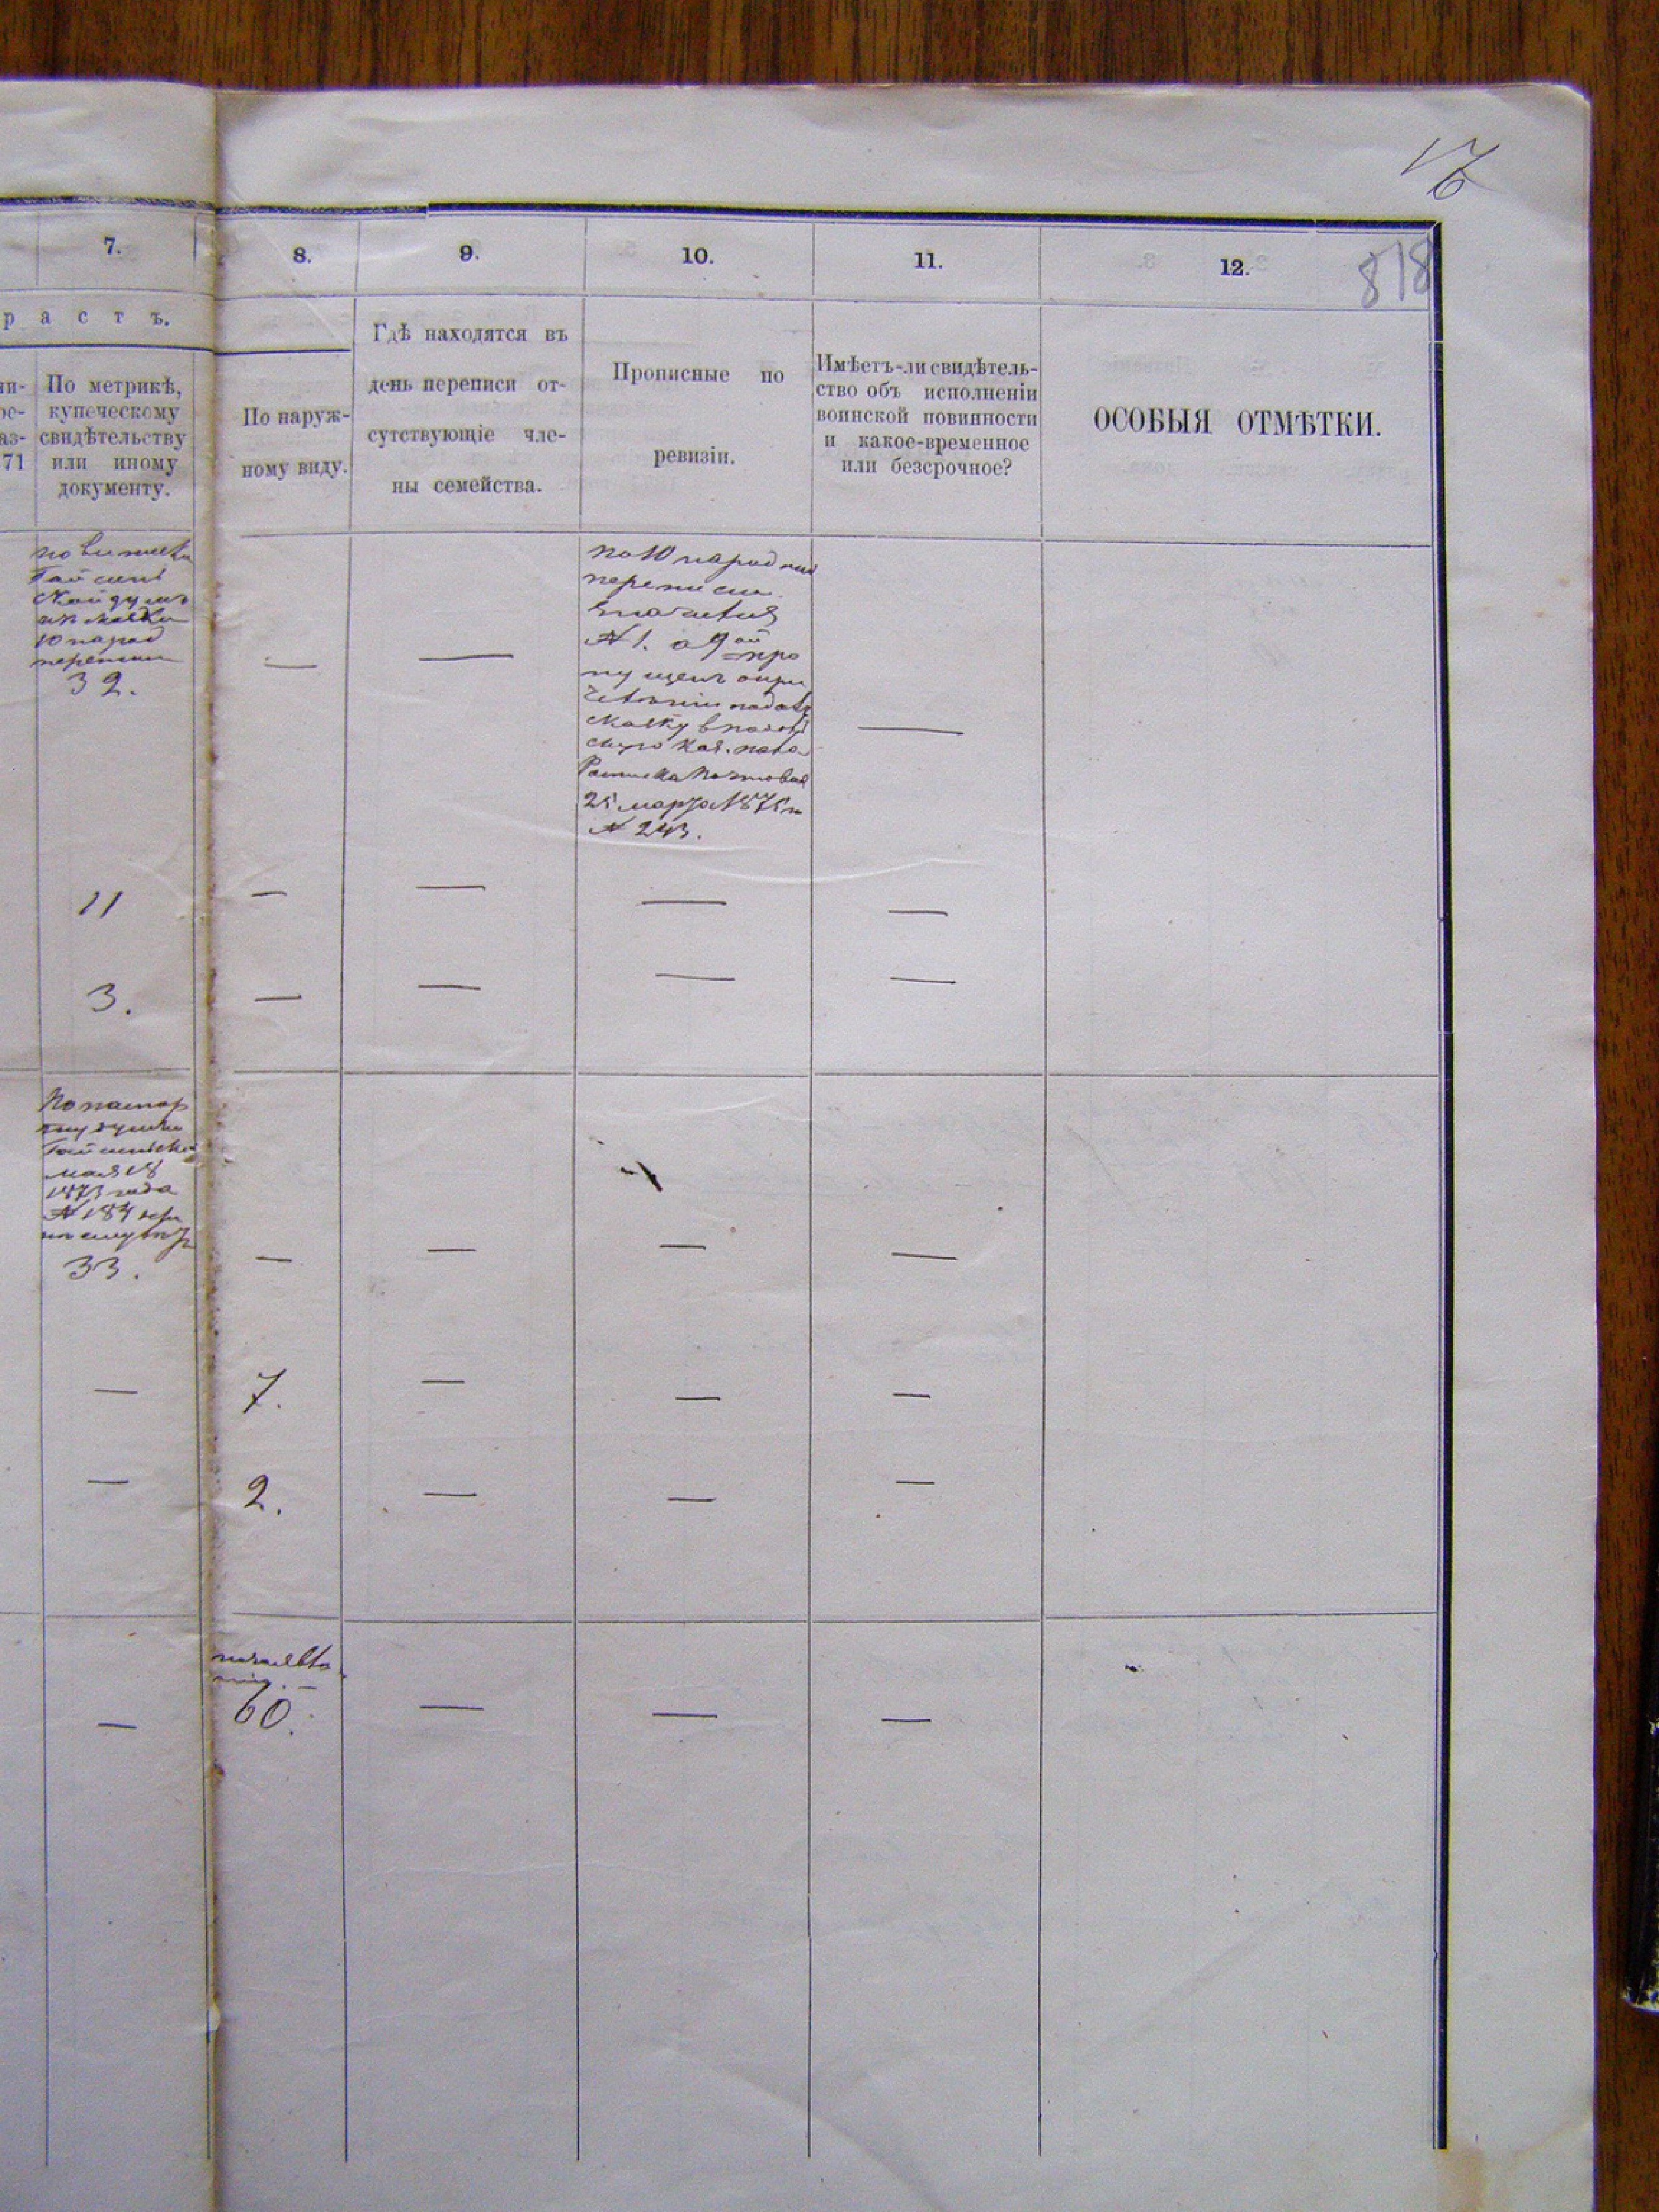 17
6
818
7.
8.
9.
10.
11.
12.
р а с т ъ.
71
По метрикѣ,
купеческому
свидѣтельству
или иному
документу.
По наруж-
ному виду.
Гдѣ находятся въ
день переписи от-
сутствующіе чле-
ны семейства.
Прописные по
ревизіи.
Имѣетъ-ли свидѣтель-
ство объ исполненіи
воинской повинности
и какое-временное
или безсрочное?
ОСОБЫЯ ОТМѢТКИ.
Гайсинь
ской думы
10 народ
переписи
32.
—
—
по 10 народной
переписи
значится
№ 1. а 9ой про
пущенъ
сказку
Росписка почтовая
25 марта 1875 г
№ 243.
—
11
—
—
—
—
3.
—
—
—
—
По паспор
ту думы
Гайсинской
мая 18
1873 года
№ 184
33.
—
—
—
—
—
7.
—
—
—
—
2.
—
—
—
—
60.
—
—
—